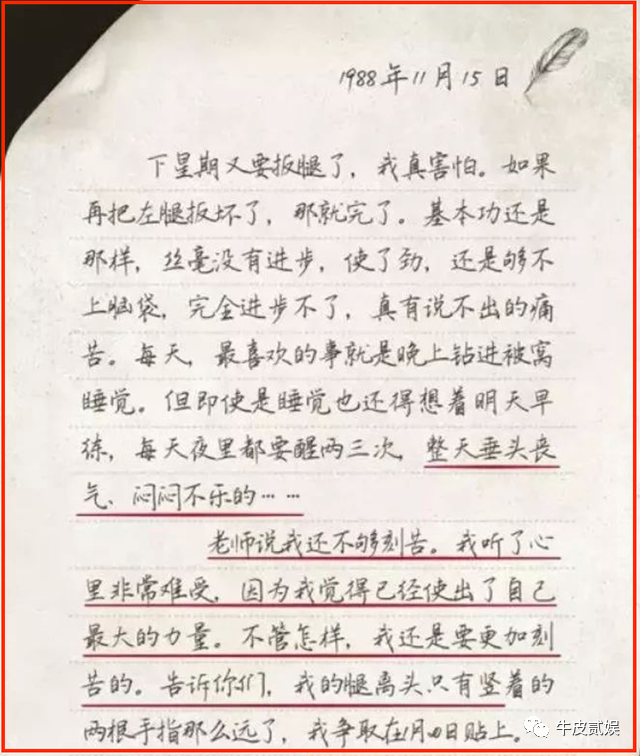 1988年11月15日
下星期又要扳腿了，我真害怕。如果
再把左腿扳坏了，那就完了。基本功还是
那样，丝毫没有进步，使了劲，还是够不
上脑袋，完全进步不了，真有说不出的痛
苦。每天，最喜欢的事就是晚上钻进被窝
睡觉。但即使是睡觉也还得想着明天早
练，每天夜里都要醒两三次，整天垂头丧
气、闷闷不乐的……
老师说我还不够刻苦。我听了心
里非常难受，因为我觉得已经使出了自己
最大的力量。不管怎样，我还是要更加刻
苦的。告诉你们，我的腿离头只有竖着的
两根手指那么远了，我争取在1月日贴上。
牛皮贰娱